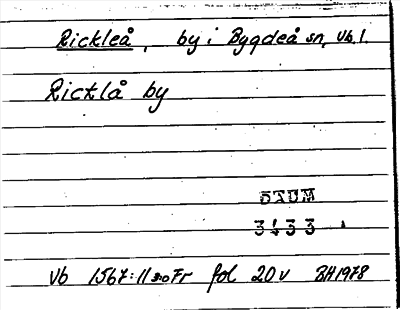 Rickleå, by i Bygdeå sn, Vb. l.
Ricklå by
DAUM
3433
Vb 1567:11 Fr fol 20v BH 1978